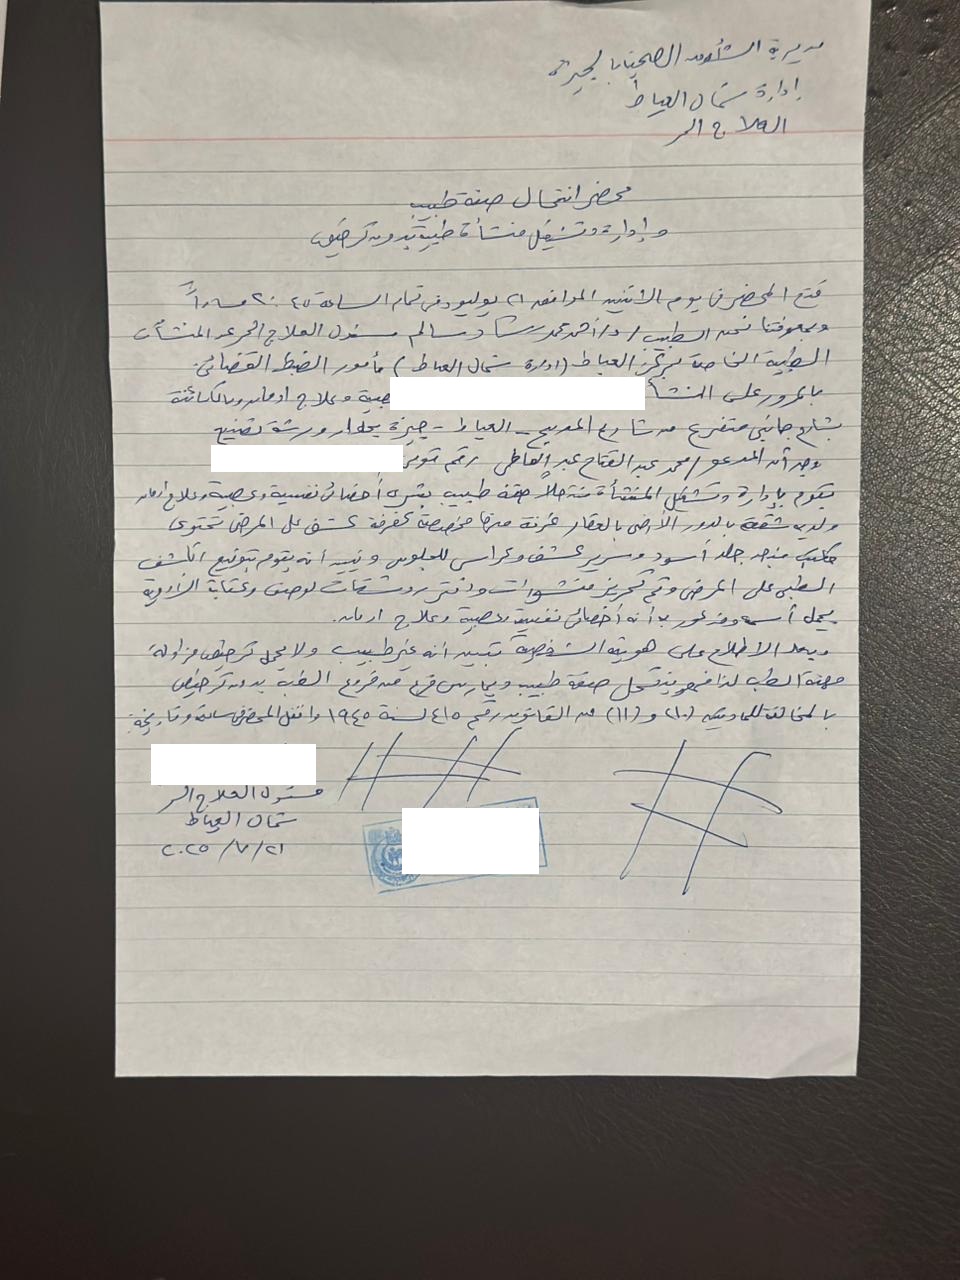 مديرية الشئون الصحية بالجيزة
إدارة شمال العياط
العلاج الحر
محضر انتحال صفة طبيب
وإدارة وتشغيل منشأة طبية بدون ترخيص
فتح المحضر في يوم الاثنين الموافق ٢١ يوليو وفي تمام الساعة ٢٠:٤٥ مساءاً
وبمعرفتنا نحن الطبيب / د/ أحمد محمد رشاد سالم مسئول العلاج الحر عن المنشآت
الطبية الخاصة بمركز العياط (إدارة شمال العياط) مأمور الضبط القضائي.
بالمرور على المنشأ صبية وعلاج ادمان وبالكائنة
بشارع جانبي متفرع من شارع المدبح - العياط - جيزة بجوار ورشة تصنيع
وجد أن المدعو / محمد عبد الفتاح عبد العاطي رقم قومى
يقوم بإدارة وتشغيل المنشأة منتحلاً صفة طبيب بشرى أخصائى نفسية وعصبية وعلاج ادمان
ولديه شقة بالدور الارضى بالعقار غرفة منها مخصصة كغرفة كشف على المرضى تحتوى
مكتب منجد جلد أسود وسرير كشف وكراسى للجلوس وتبين أنه يقوم بتوقيع الكشف
الطبى على المرضى وتم تحريز منشورات ودفتر روشتات لوصف وكتابة الأدوية
يحمل أسمه ومذكور به أنه أخصائى نفسية وعصبية وعلاج ادمان.
وبعد الاطلاع على هويته الشخصية تبين أنه غير طبيب ولا يحمل ترخيص مزاولة
مهنة الطب لذا فهو ينتحل صفة طبيب ويمارس فرع من فروع الطب بدون ترخيص
بالمخالفة للمادتين (١٠) و (١١) من القانون رقم ٤١٥ لسنة ١٩٤٥ واقفل المحضر فى ساعته وتاريخه
مسئول العلاج الحر
شمال العياط
٢٠٢٥/٧/٢١